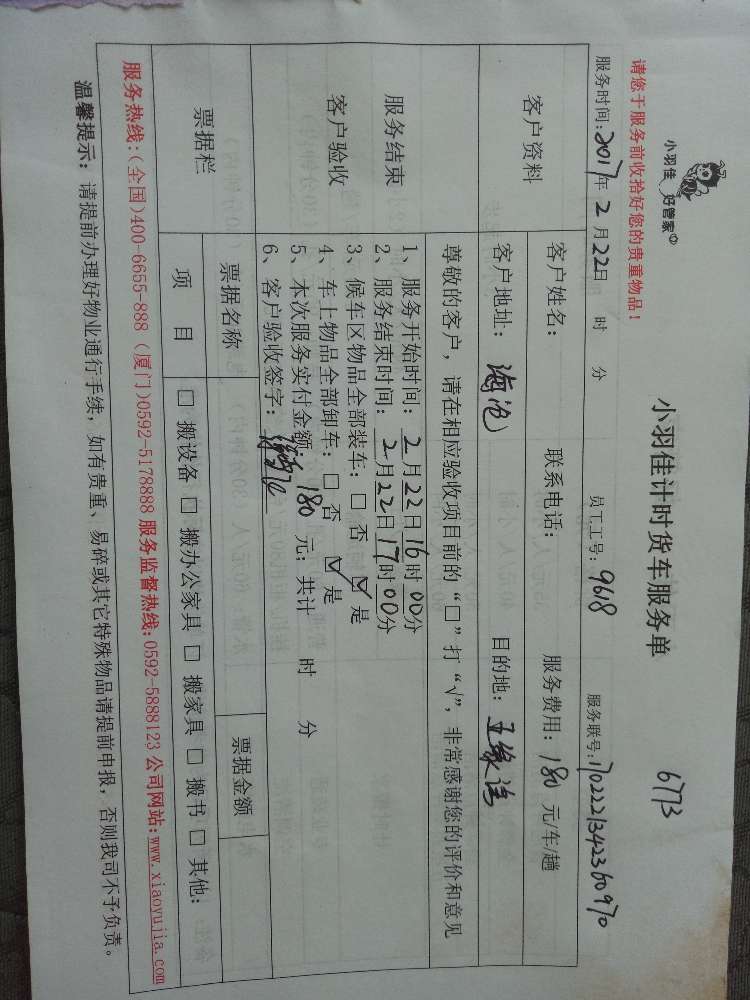 小羽佳 好管家
小羽佳计时货车服务单
6773
请您于服务前收拾好您的贵重物品！
服务时间：2017年 2 月 22日 时 分 员工工号：9618 服务联号：1702221342360970
客户资料
客户姓名： 联系电话： 服务费用：180 元/车/趟
客户地址：海沧 目的地：
尊敬的客户，请在相应验收项目前的“□”打“√”，非常感谢您的评价和意见
服务结束
客户验收
1、服务开始时间：2月22日16时00分
2、服务结束时间：2月22日17时00分
3、候车区物品全部装车：□ 否 ☑ 是
4、车上物品全部卸车：□ 否 ☑ 是
5、本次服务实付金额 180 元；共计 时 分
6、客户验收签字：
票据栏
票据名称 票据金额
项 目 □ 搬设备 □ 搬办公家具 □ 搬家具 □ 搬书 □ 其他：
服务热线：(全国)400-6655-888 (厦门)0592-5178888 服务监督热线：0592-5888123 公司网站：www.xiaoyujia.com
温馨提示：请提前办理好物业通行手续，如有贵重、易碎或其它特殊物品请提前申报，否则我司不予负责。